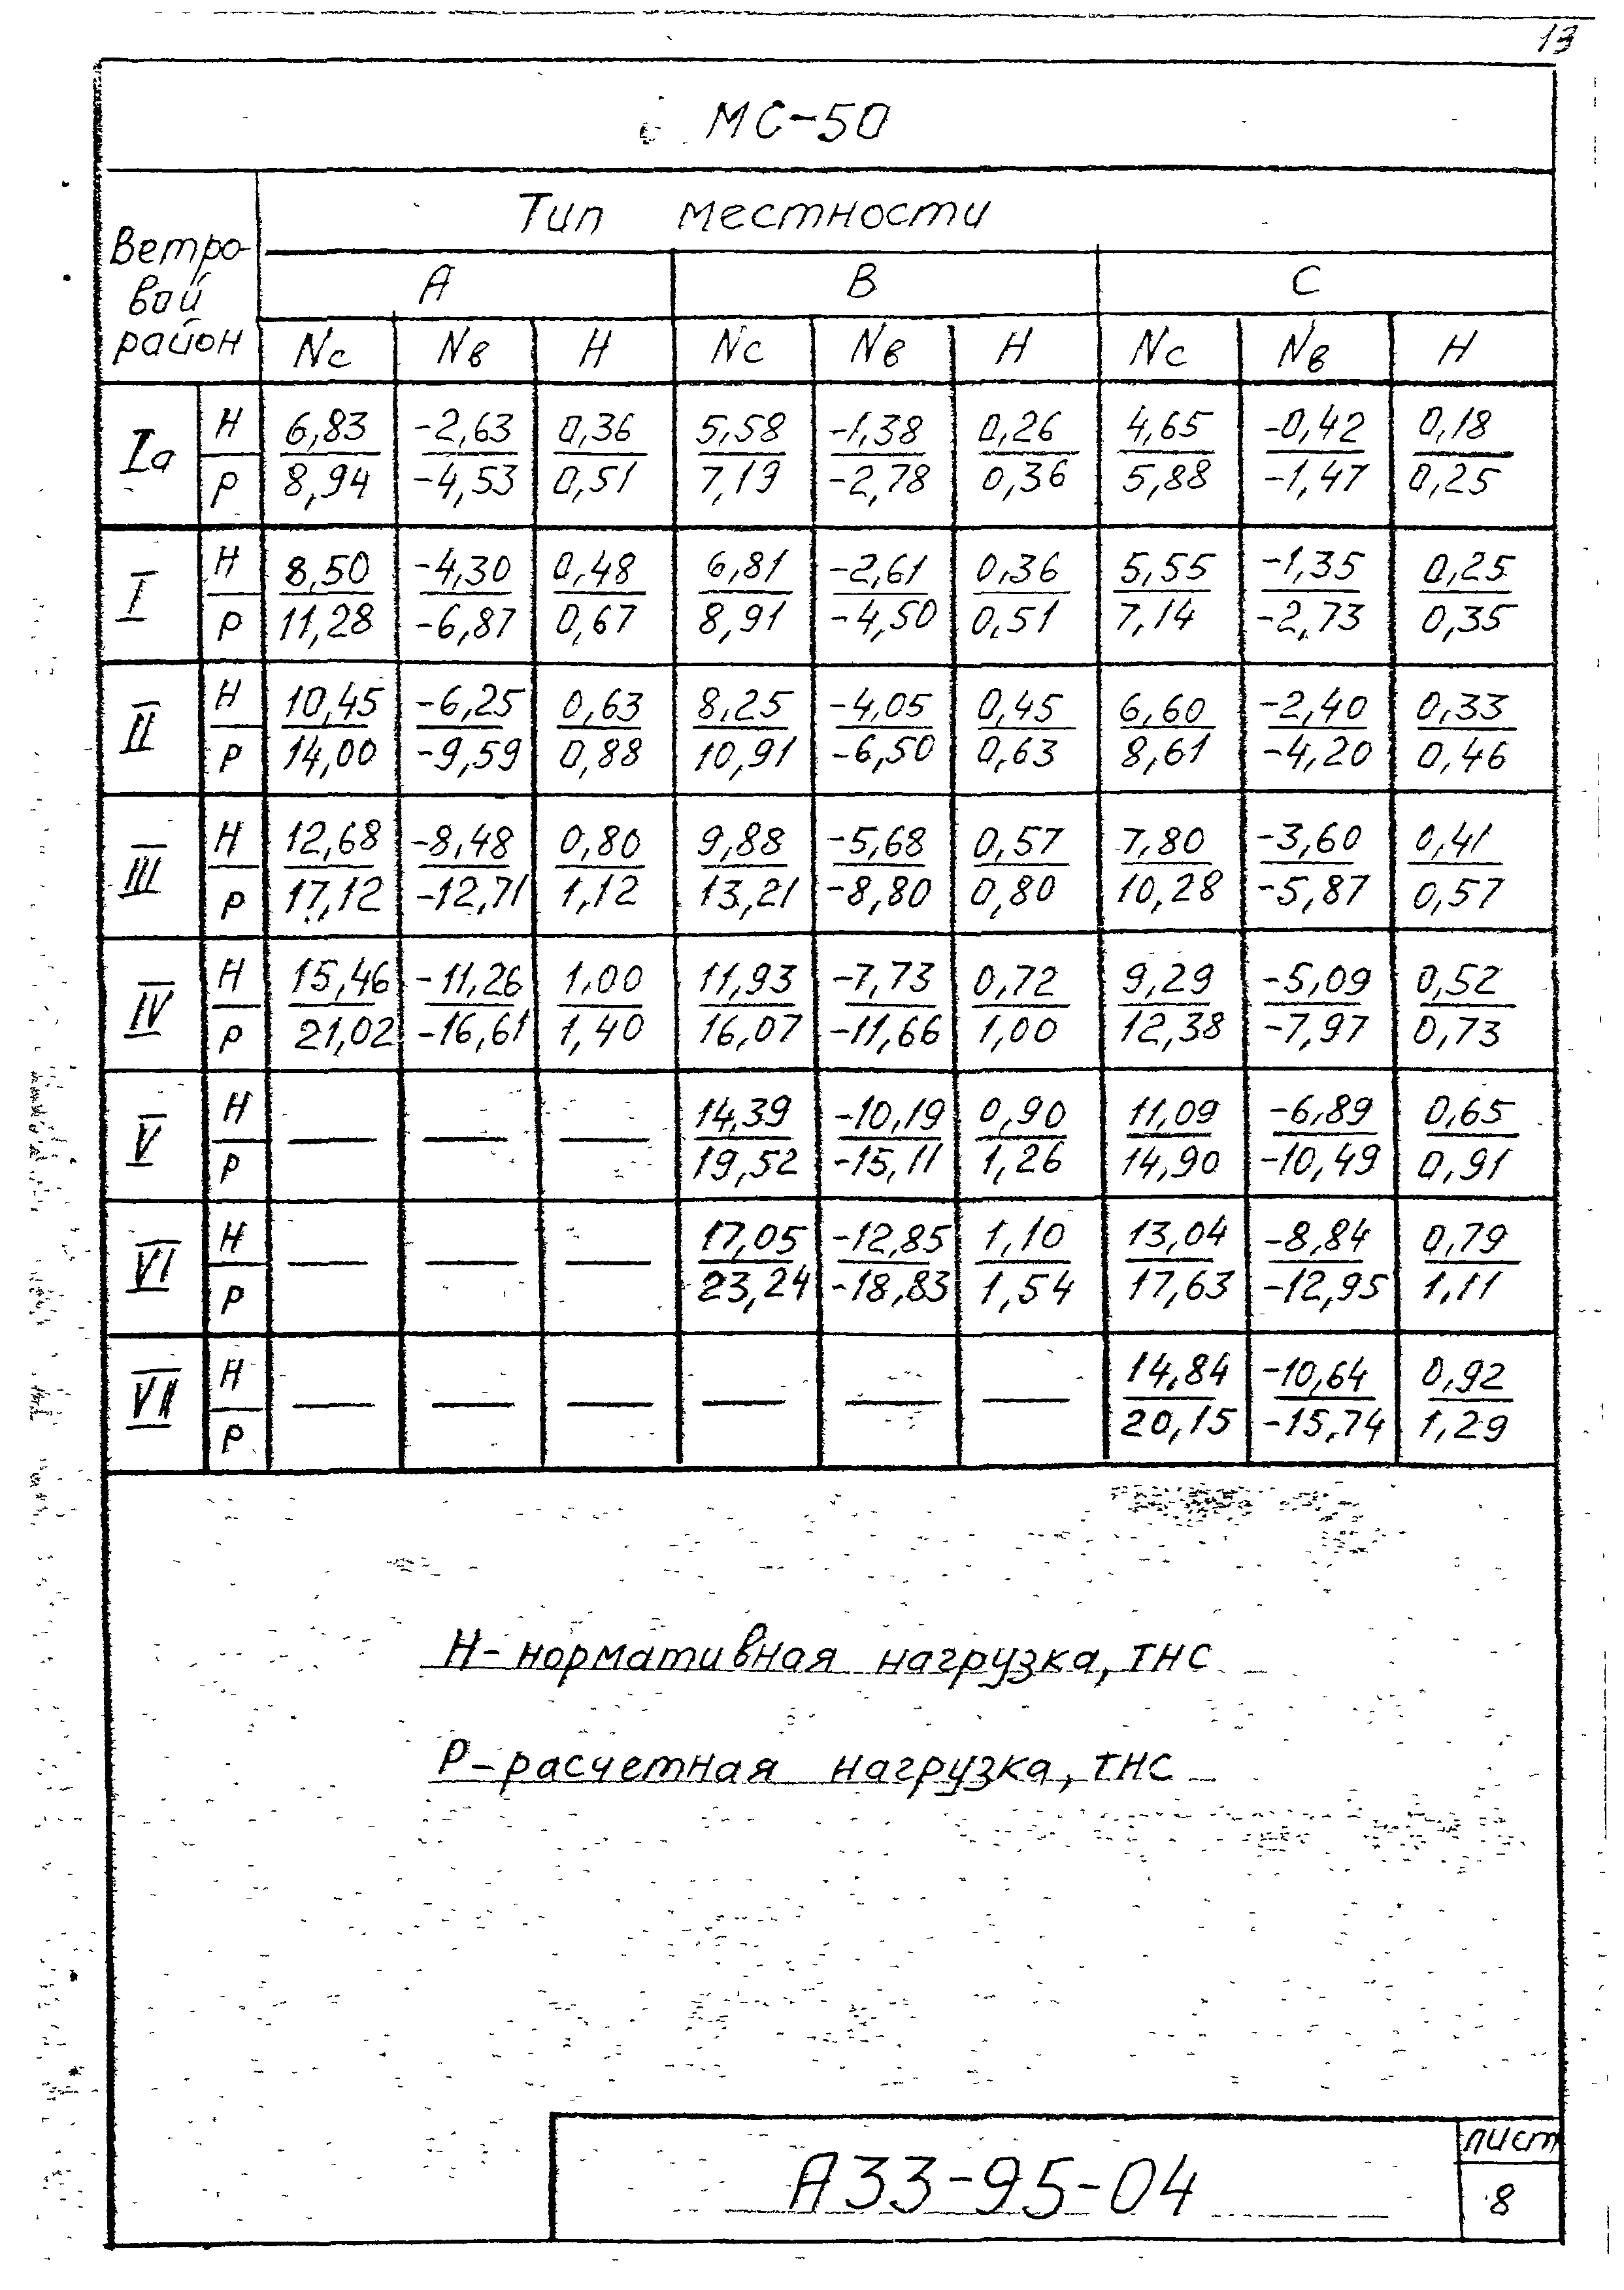 13
МС-50
Ветро-
вой
район
Тип местности
А В С
Nс Nв Н Nс Nв Н Nс Nв Н
Iа Н 6,83 -2,63 0,36 5,58 -1,38 0,26 4,65 -0,42 0,18
Р 8,94 -4,53 0,51 7,19 -2,78 0,36 5,88 -1,47 0,25
I Н 8,50 -4,30 0,48 6,81 -2,61 0,36 5,55 -1,35 0,25
Р 11,28 -6,87 0,67 8,91 -4,50 0,51 7,14 -2,73 0,35
II Н 10,45 -6,25 0,63 8,25 -4,05 0,45 6,60 -2,40 0,33
Р 14,00 -9,59 0,88 10,91 -6,50 0,63 8,61 -4,20 0,46
III Н 12,68 -8,48 0,80 9,88 -5,68 0,57 7,80 -3,60 0,41
Р 17,12 -12,71 1,12 13,21 -8,80 0,80 10,28 -5,87 0,57
IV Н 15,46 -11,26 1,00 11,93 -7,73 0,72 9,29 -5,09 0,52
Р 21,02 -16,61 1,40 16,07 -11,66 1,00 12,38 -7,97 0,73
V Н — — — 14,39 -10,19 0,90 11,09 -6,89 0,65
Р 19,52 -15,11 1,26 14,90 -10,49 0,91
VI Н — — — 17,05 -12,85 1,10 13,04 -8,84 0,79
Р 23,24 -18,83 1,54 17,63 -12,95 1,11
VII Н — — — — — — 14,84 -10,64 0,92
Р 20,15 -15,74 1,29
Н-нормативная нагрузка, тнс
Р-расчетная нагрузка, тнс
А33-95-04
лист
8